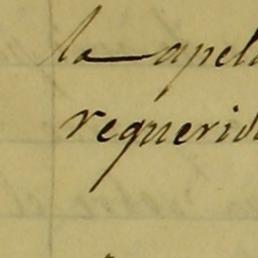 la apel
requerid